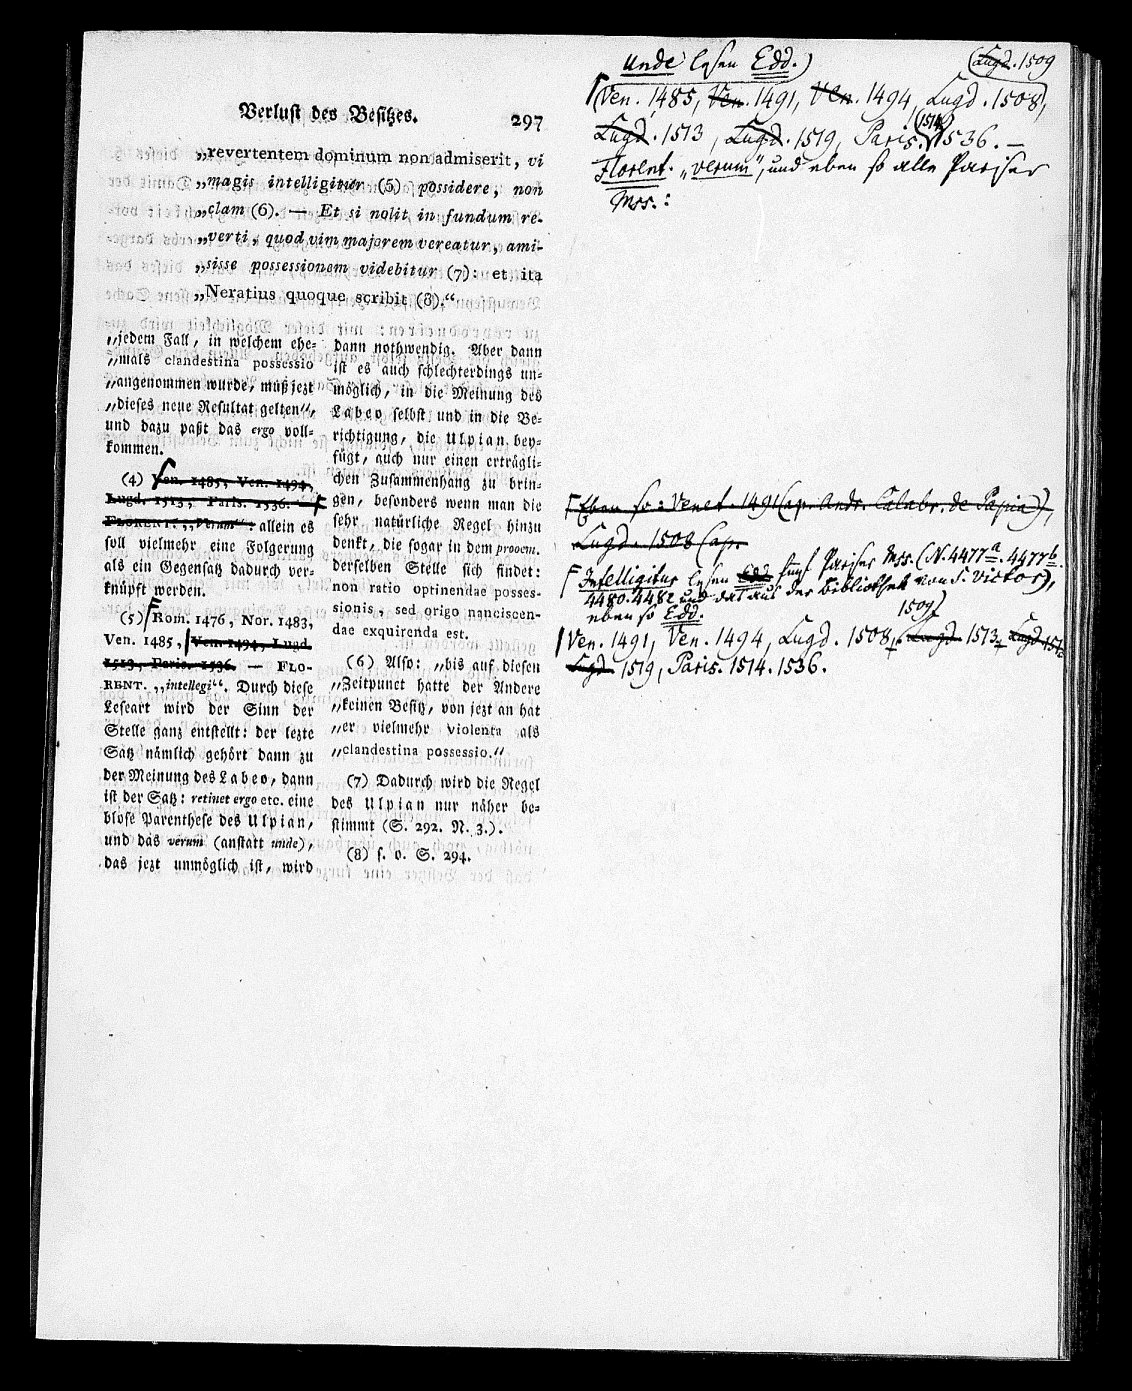 Verlust des Besitzes. 297
„revertentem dominum non admiserit, vi
„magis intelligitur (5) possidere, non
„clam (6). — Et si nolit in fundum re-
„verti, quod vim majorem vereatur, ami-
„sisse possessionem videbitur (7): et ita
„Neratius quoque scribit (8).“
„jedem Fall, in welchem ehe-
„mals clandestina possessio
„angenommen wurde, muß jezt
„dieses neue Resultat gelten“,
und dazu paßt das ergo voll-
kommen.
(4) Ven. 1485, Ven. 1494,
Lugd. 1513, Paris. 1536. —
FLORENT. „Verum“: allein es
soll vielmehr eine Folgerung
als ein Gegensatz dadurch ver-
knüpft werden.
(5) Rom. 1476, Nor. 1483,
Ven. 1485, Ven. 1494, Lugd.
1513, Paris. 1536. — FLO-
RENT. „intellegi“. Durch diese
Leseart wird der Sinn der
Stelle ganz entstellt: der lezte
Satz nämlich gehört dann zu
der Meinung des Labeo, dann
ist der Satz: retinet ergo etc. eine
blose Parenthese des Ulpian,
und das verum (anstatt unde),
das jezt unmöglich ist, wird
dann nothwendig. Aber dann
ist es auch schlechterdings un-
möglich, in die Meinung des
Labeo selbst und in die Be-
richtigung, die Ulpian bey-
fügt, auch nur einen erträgli-
chen Zusammenhang zu brin-
gen, besonders wenn man die
sehr natürliche Regel hinzu
denkt, die sogar in dem prooem.
derselben Stelle sich findet:
non ratio optinendae posses-
sionis, sed origo nanciscen-
dae exquirenda est.
(6) Also: „bis auf diesen
„Zeitpunct hatte der Andere
„keinen Besitz, von jezt an hat
„er vielmehr violenta als
„clandestina possessio.“
(7) Dadurch wird die Regel
des Ulpian nur näher be-
stimmt (S. 292. N. 3.).
(8) s. o. S. 294.
unde lesen Edd.)
(Lugd. 1509
(Ven. 1485, Ven. 1491, Ven. 1494, Lugd. 1508,
Lugd. 1513, Lugd. 1519, Paris. 1514 1536. —
Florent. „verum“, und eben so alle Pariser
Mss.:
Eben so: Venet. 1491 (ap. Andr. Calabr. de Papia),
Lugd. 1508 (ap.
Intelligitur lesen Edd. fünf Pariser Mss. (N. 4477a. 4477b.
4480. 4482 und das aus der Bibliothek von S. Victor),
eben so Edd.
1509
Ven. 1491, Ven. 1494, Lugd. 1508, Lugd. 1513, Lugd.
Lugd. 1519, Paris. 1514. 1536.